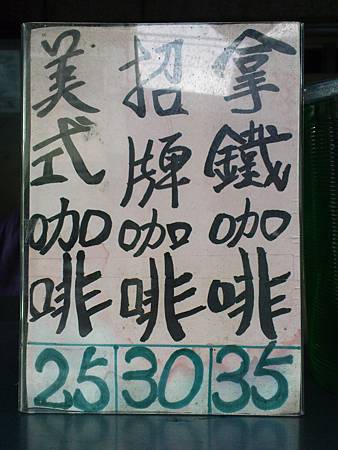 拿鐵咖啡 35
招牌咖啡 30
美式咖啡 25